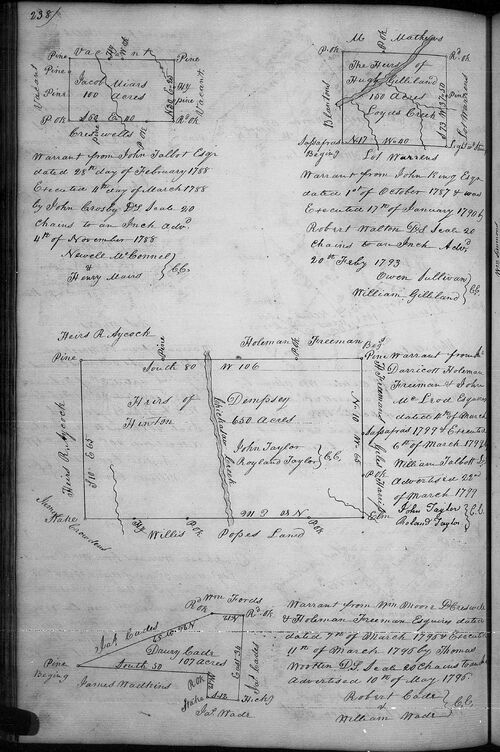 238/
Vacant
Pine
Hy
Wth
Pine
Pine
Vacant
Jacob Miars
100
Acres
Pine
Hy
pine
Vacant
P.ok
S 60 E 40
R.ok
Creswells
pine
P.ok
Warrant from John Talbot Esqr
dated 28th day of February 1788
Executed 4th day of March 1788
by John Crosby D.S. Scale 20
Chains to an Inch Advd
4th of November 1788
Newell McConnel
&
Henry Mairs
C.C.
Mc Mathews
P.ok
P.ok
R.ok
The Heirs of
Hugh Gilliland
150 Acres
Loyds Creek
Blantons
Pine
Lot Warrens
Sassafras
Beginning
N 17
W 40
Lot Warrens
Warrant from John King Esqr
dated 1st of October 1787 & was
Executed 17th of January 1790 by
Robert Walton D.S. Scale 20
Chains to an Inch Advd
20th Feby 1793
Owen Sullivan
William Gilliland
C.C.
Heirs R. Aycock
Pine
Holeman Freeman
P.ok
Pine
South 80
W 106
Pine
Heirs of
Hinton
Dempsey
650 Acres
John Taylor
Royland Taylor
C.C.
Heirs R. Aycock
S 10 E 65
N. 10 W. 65
Sassafras
P.ok
Elm
Stake
Hy
Willis
P.ok
Popes Land
P.ok
Warrant from
Darricott Holman
Freeman & John
McLeod Esquires
dated 4th of March
1799 & Executed
6th of March 1799 by
William Talbott D.S.
Advertised 22nd
of March 1799
John Taylor
Roland Taylor
C.C.
Jas Cades
R.
ok
Wm Fords
R.ok
Drury Cade
107 acres
Pine
Beginning
South 50
James Wadkins
Jas Cades
R.ok
Stake
Hicky
Jas Wade
Warrant from Wm Moore D Creswell
& Holeman Freeman Esquires dated
dated 7th of March 1796 & Executed
11th of March 1796 by Thomas
Wootten D.S. Scale 20 Chains to an Inch
Advertised 10th of May 1796.
Robert Cade
&
William Wade
C.C.